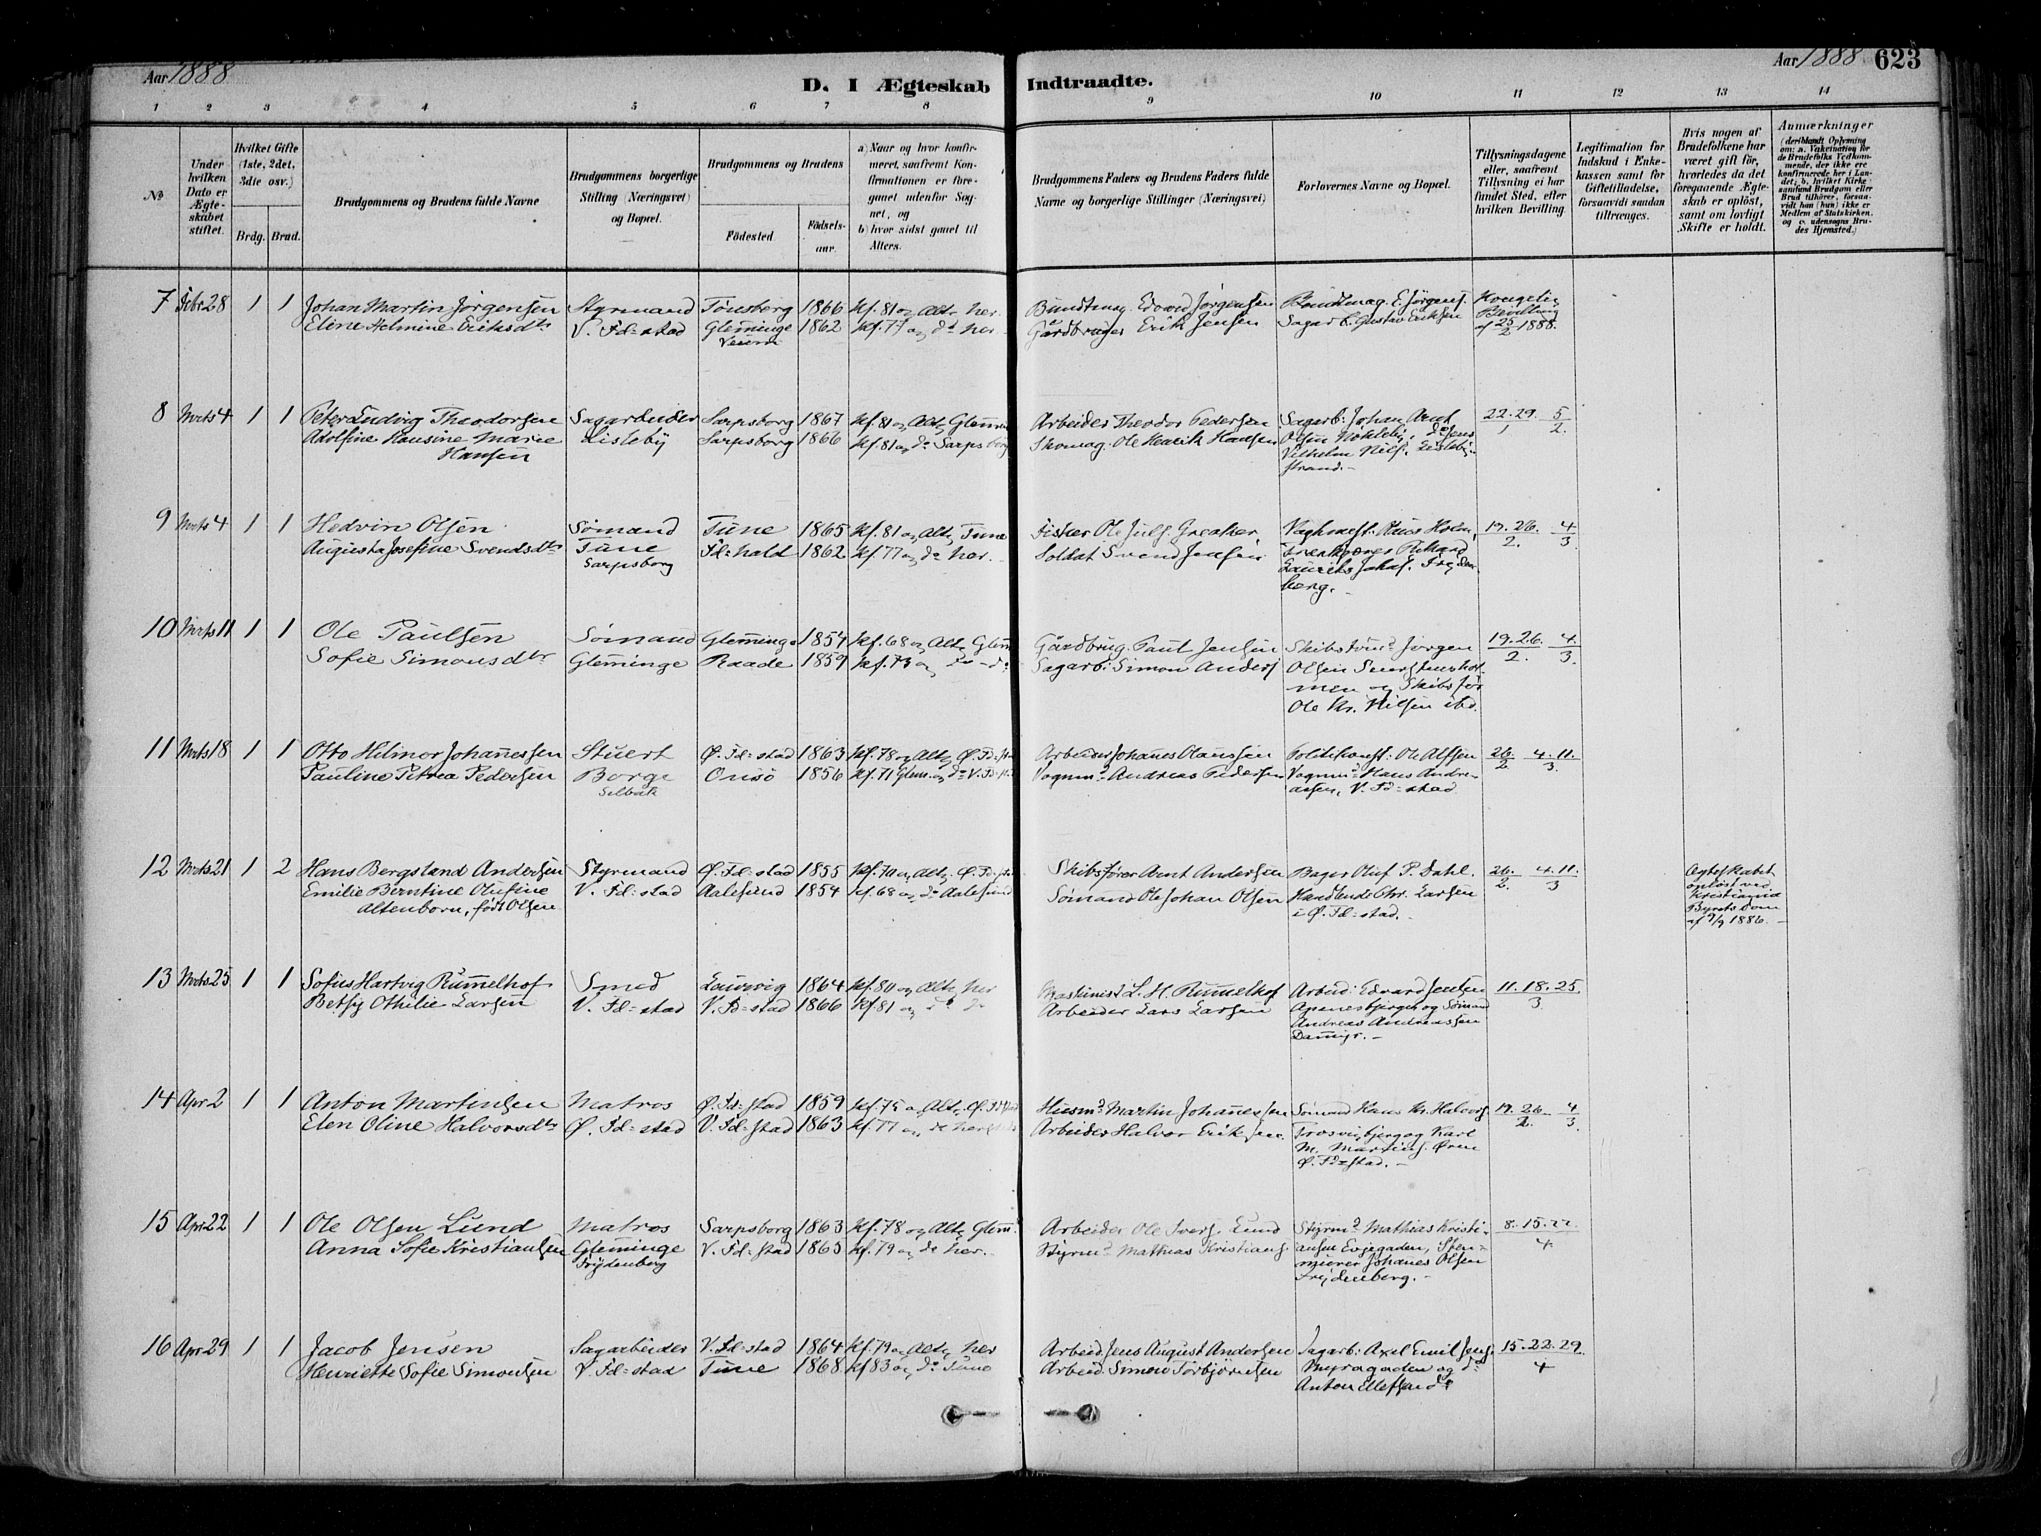 Aar 1888
D. I Ægteskab Indtraadte.
Aar 1888 623
1 2 3 4 5 6 7 8 9 10 11 12 13 14
No
Under hvilken Dato er Ægteskabet stiftet.
Hvilket Gifte (1ste, 2det, 3die osv.)
Brdg. Brud.
Brudgommens og Brudens fulde Navne
Brudgommens borgerlige Stilling (Næringsvei) og Bopæl.
Brudgommens og Brudens
Fødested
Fødselsaar.
a) Naar og hvor konfirmeret, saafremt Konfirmationen er foregaaet udenfor Sognet, og
b) hvor sidst gaaet til Alters.
Brudgommens Faders og Brudens Faders fulde Navne og borgerlige Stillinger (Næringsvei)
Forlovernes Navne og Bopæl.
Tillysningsdagene eller, saafremt Tillysning ei har fundet Sted, efter hvilken Bevilling.
Legitimation for Indskud i Enkekassen samt for Giftetilladelse, forsaavidt saadan tiltrænges.
Hvis nogen af Brudefolkene har været gift før, hvorledes da det foregaaende Ægteskab er opløst, samt om lovligt Skifte er holdt.
Anmærkninger
(deriblandt Oplysning om: a. Vakcination for de Brudefolks Vedkommende, der ikke ere konfirmerede her i Landet; b. hvilket Kirkesamfund Brudgom eller Brud tilhører, forsaavidt han (hun) ikke er Medlem af Statskirken, og c. udensogns Brudes Hjemsted.)
7 Febr 28 1 1 Johan Martin Jørgensen Styrmand Tønsberg 1866 kf. 81 og Altr her Bundtmag. Edvard Jørgensen Bundtmag. E. Jørgens. Kongelig
Eline Helmine Eriksdtr V. Fd=stad Glemminge 1862 kf. 77 og do her Gårdbruger Erik Jensen Sagarb. Gustav Eriksen Bevilling
af 25/2 1888.
8 Mrts 4 1 1 Peter Ludvig Theodorsen Sagarbeider Sarpsborg 1867 kf. 81 og Altr Glemm Arbeider Theodor Pedersen Sagarb. Johan Arnt 22. 29. 5
Adolfine Hansine Marie Lisleby Sarpsborg 1866 kf. 81 og do Sarpsborg Skomag. Ole Henrik Hansen Olsen 1 2.
Hansen Vilhelm Nils. Lisleby
strand.-
9 Mrts 4 1 1 Hedvin Olsen Sømand Tune 1865 kf. 81 og Altr Tune Ole Juls. Greaker, Claus Holm, 19. 26. 4
Augusta Josefine Svendsdtr Tune Fd=hald 1862 kf. 77 og do her. Soldat Svend Jensen Rikard 2. 3.
Sarpsborg Laurits Johs. Frydenberg.
10 Mrts 11 1 1 Ole Paulsen Sømand Glemminge 1854 kf. 68 og Altr Glem Gårdbrug. Paul Jensen Skibstømr Jørgen 19. 26. 4
Sofie Simonsdtr Glemminge Raade 1859 kf. 73 og do do Sagarb. Simon Anders Olsen 2. 3.
men og Skibsfør
Ole Kr. Nilsen ibd.
11 Mrts 18 1 1 Otto Hilmor Johannessen Stuert Ø. Fd=stad 1863 kf. 78 og Altr Ø. Fd=stad Arbeider Johannes Olaussen Politikonst. Ole Olsen 26. 4. 11.
Pauline Petrea Pedersen Borge Onsø 1856 kf. 71 Glem. og do V. Fd=st Vognm. Andreas Pedersen Vognm. Hans Andre- 2 3.
Selbak assen, V. Fd=stad
12 Mrts 21 1 2 Hans Bergstand Andersen Styrmand Ø. Fd=stad 1855 kf. 70 og Altr Ø. Fd=stad Skibsfører Arnt Andersen Bager Oluf P. Dahl. 26. 4. 11. Ægteskabet
Emilie Berntine Olufine V. Fd=stad Aalesund 1854 kf. 68 og do Aalesund Sømand Ole Johan Olsen Handlende Chr. Larsen 2. 3 opløst ved
Altenborn, født Olsen i Ø. Fd=stad. Kristiania
Byrets Dom
af 9/9 1886.
13 Mrts 25 1 1 Sofus Hartvig Rummelhof Smed Laurvig 1864 kf. 80 og Altr her Maskinist L. H. Rummelhof Arbeid. Edvard Jensen 11. 18. 25.
Betsy Othilie Larsen V. Fd=stad V. Fd=stad 1866 kf 81 og do do Arbeider Lars Larsen Apenesbjerget og Sømand 3.
Andreas Andreassen
Dammyr.
14 Apr 2 1 1 Anton Martinsen Matros Ø. Fd=stad 1859 kf. 75 og Altr Ø. Fd=stad Husm. Martin Johannessen Sømand Hans Kr. Halvors 19. 26. 4
Elen Oline Halvorsdtr Ø. Fd=stad V. Fd=stad 1863 kf. 77 og do her Arbeider Halvor Eriksen. Trosvikbjerg og Karl 2. 3.
M. Martins. Øren
Ø. Fd=stad.
15 Apr 22 1 1 Ole Olsen Lund Matros Sarpsborg 1863 kf. 78 og Altr Glem. Arbeider Ole Ivers. Lund Styrm. Mathias Kristi- 8. 15. 22
Anna Sofie Kristiansen Glemminge V. Fd=stad 1865 kf. 79 og do her. Styrm. Mathias Kristians. ansen Evjegaden, Sten- 4
Frydenberg murer Johannes Olsen
Frydenberg.
16 Apr 29 1 1 Jacob Jensen Sagarbeider V. Fd=stad 1864 kf. 79 og Altr her Arbeid. Jens August Andersen Sagarb. Axel Emil Jens. 15. 22. 29.
Henriette Sofie Simonsen V. Fd=stad Tune 1868 kf 83 og do Tune Arbeid. Simon Torbjørnsen Myragaden og do 4
Anton Ellefsen do